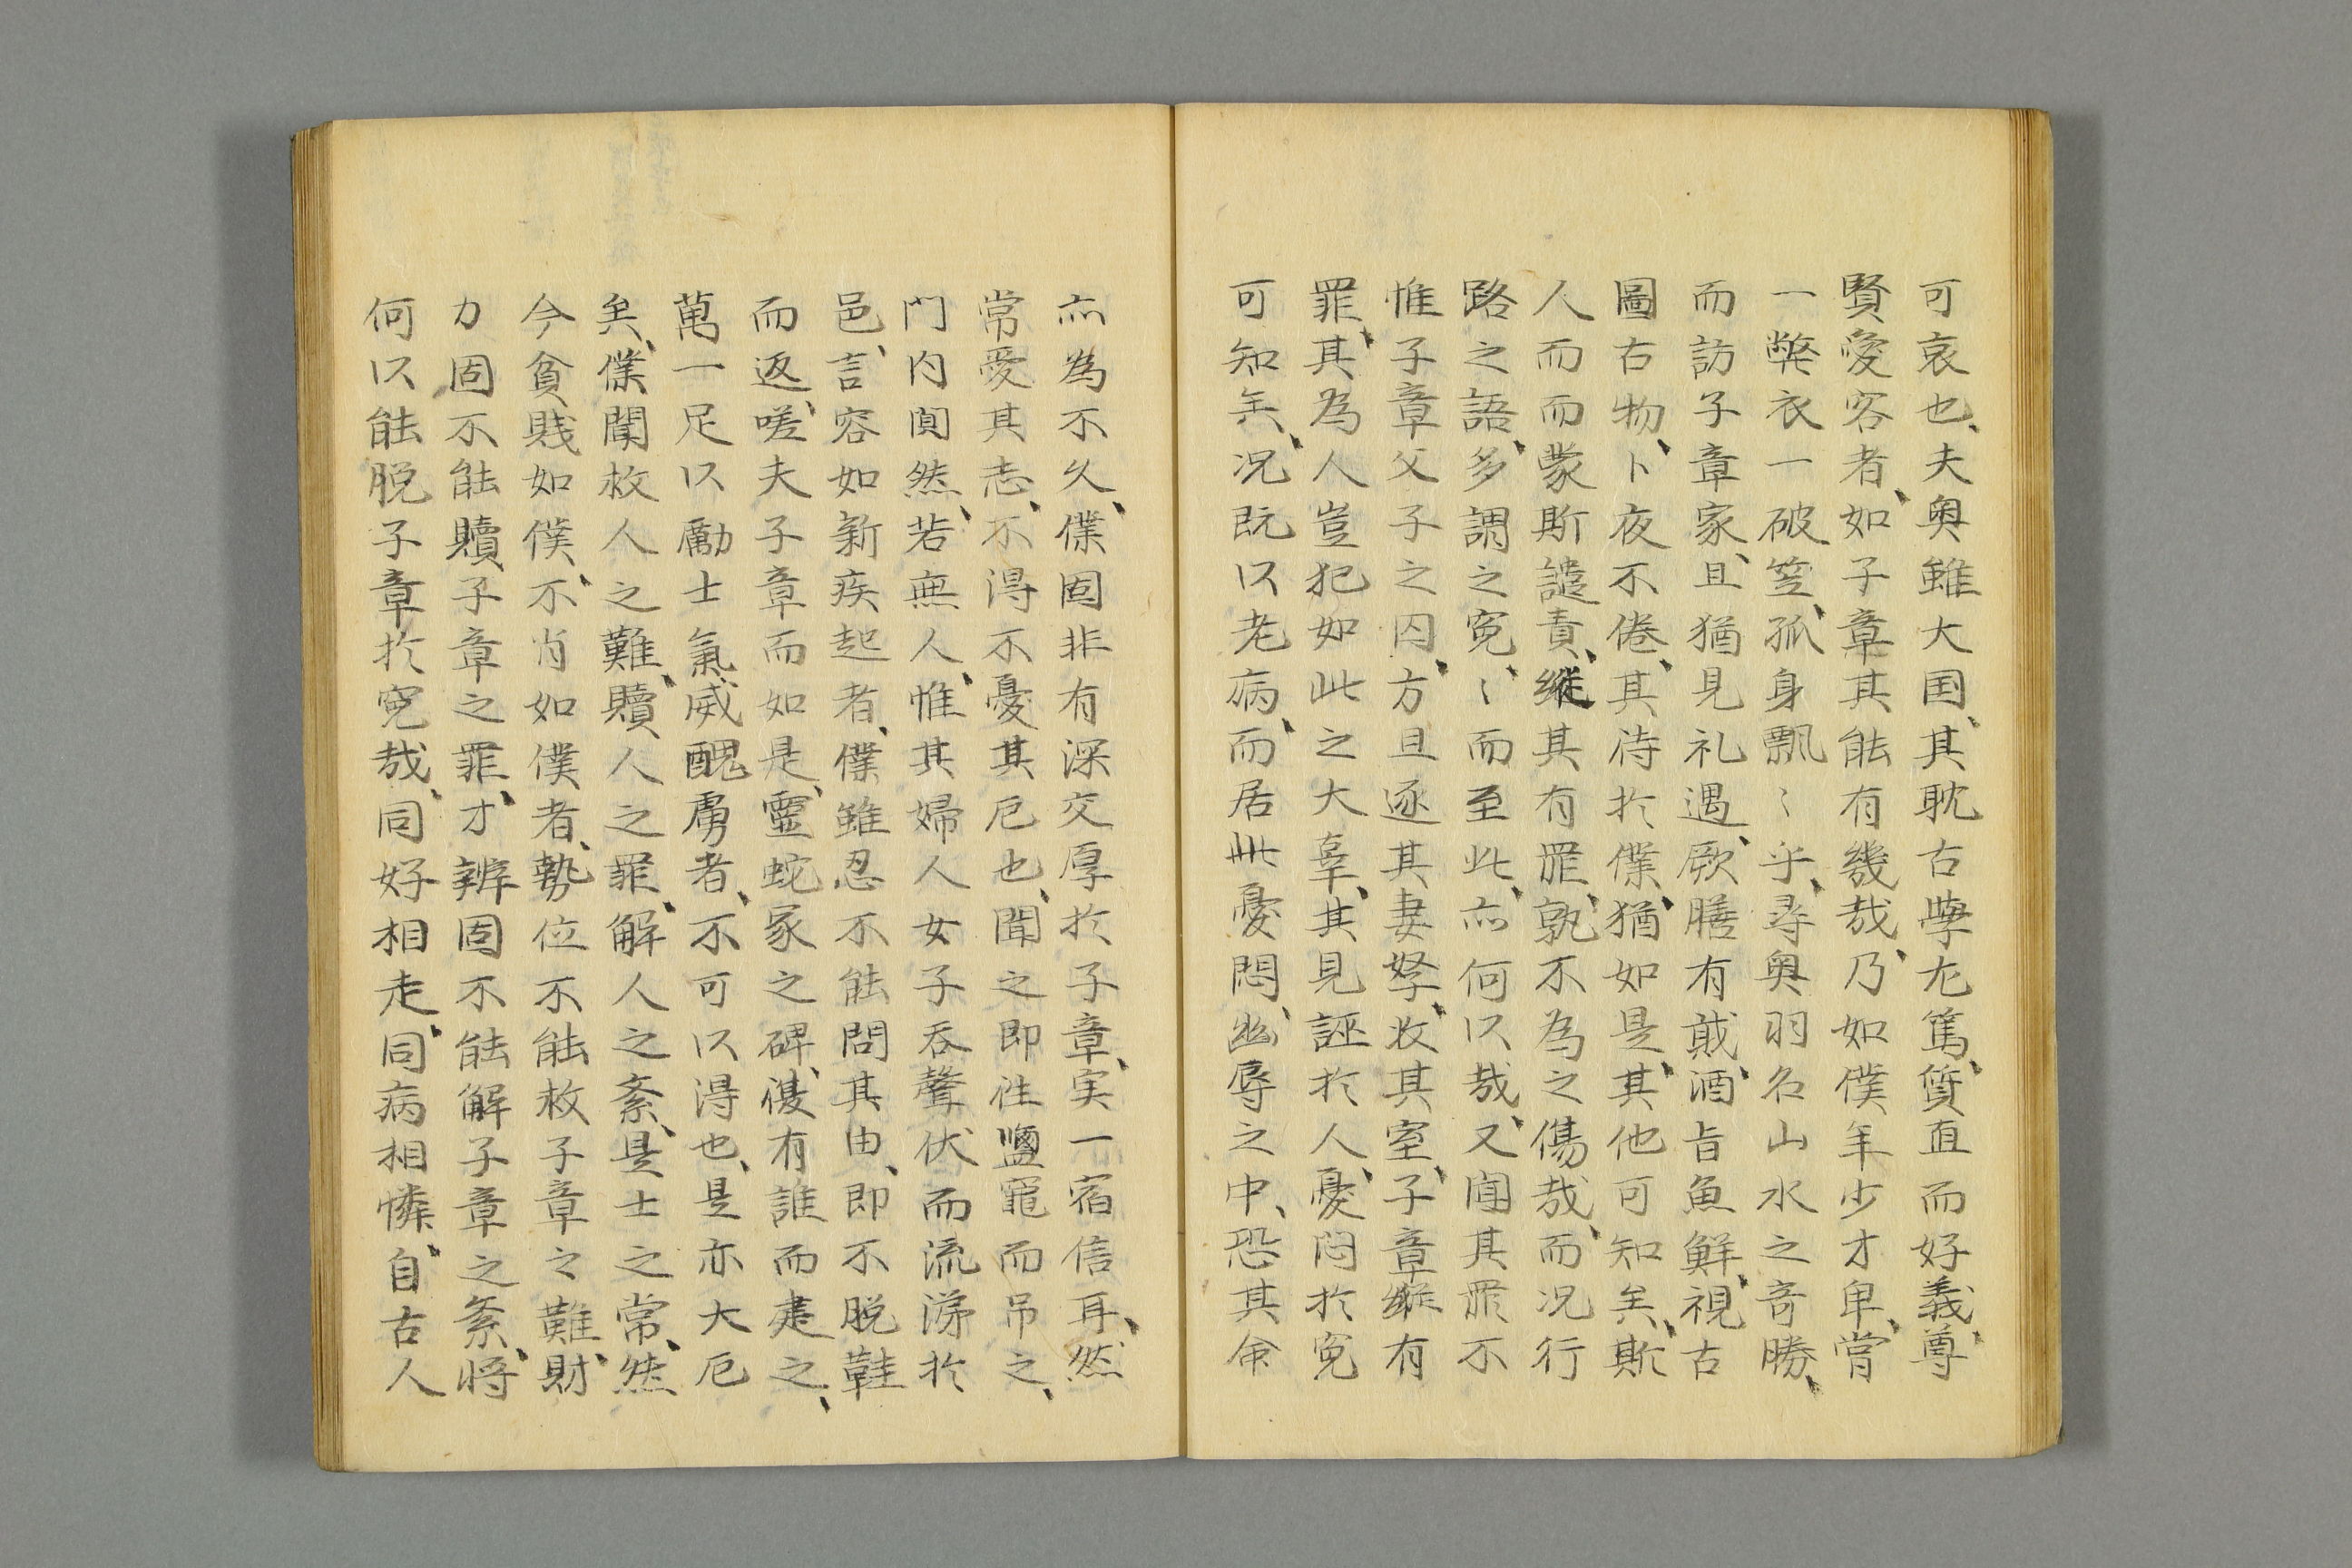 可哀也、夫奥雖大国、其耽古學尤篤、質直而好義、尊
賢愛客者、如子章其能有幾哉、乃如僕年少才卑、嘗
一弊衣一破笠、孤身飄〻乎、尋奥羽名山水之奇勝、
而訪子章家、且猶見礼遇、厥膳有胾、酒旨魚鮮、視古
圖古物、卜夜不倦、其待於僕、猶如是、其他可知矣、斯
人而而蒙斯譴責、縱其有罪、孰不為之傷哉、而況行
路之語、多謂之寃、〻而至此、亦何以哉、又聞其罪不
惟子章父子之囚、方且逐其妻孥、收其室、子章縱有
罪、其為人豈犯如此之大辜、其見誣於人、憂悶於寃
可知矣、況既以老病、而居此憂悶、幽辱之中、恐其命
亦為不久、僕固非有深交厚於子章、実一宿信耳、然
常愛其志、不得不憂其厄也、聞之即往鹽竈而吊之、
門内闃然、若無人、惟其婦人女子呑聲伏而流涕於
邑、言容如新疾起者、僕雖忍不能問其由、即不脱鞋
而返、嗟夫子章而如是、靈蛇冢之碑、復有誰而建之、
萬一足以勵士氣、威醜虜者、不可以得也、是亦大厄
矣、僕聞救人之難、贖人之罪、解人之紊、是士之常、然
今貧賎如僕、不肖如僕者、勢位不能救子章之難、財
力固不能贖子章之罪、才辨固不能解子章之紊、将
何以能脱子章於寃哉、同好相走、同病相憐、自古人